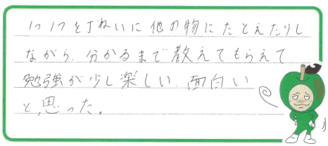 1つ1つを丁ねいに他の物にたとえたりし
ながら、分かるまで教えてもらえて
勉強が少し楽しい、面白い
と、思った。